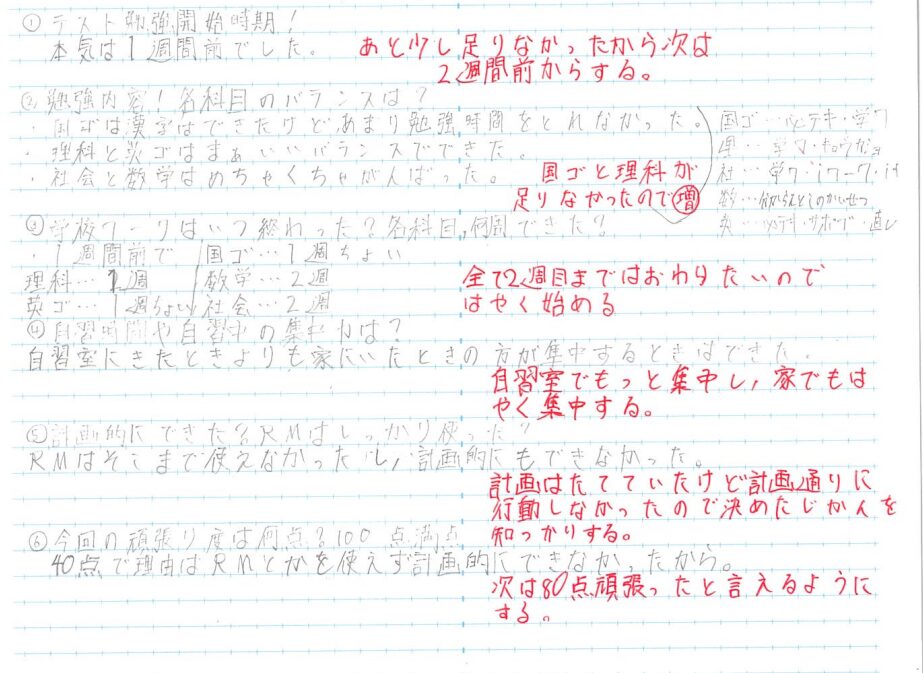 ① テスト勉強開始時期!
本気は1週間前でした。
あと少し足りなかったから次は
2週間前からする。
② 勉強内容!各科目のバランスは?
・国ゴは漢字はできたけどあまり勉強時間をとれなかった。
・理科と英ゴはまぁいいバランスでできた。
・社会と数学はめちゃくちゃがんばった。
国ゴと理科が
足りなかったので増
国ゴ…必テキ・学ワ
理…学マ・
社…学ワ・iワーク・
数…
英…必テキ・サポート・直し
③ 学校ワークはいつ終わった?各科目何周できた?
・1週間前で
国ゴ…1週ちょい
理科…1週
数学…2週
英ゴ…1週ちょい
社会…2週
全て2週目まではおわりたいので
はやく始める
④ 自習時間や自習中の集中力は?
自習室にきたときよりも家にいたときの方が集中するときはできた。
自習室でもっと集中し、家でもは
やく集中する。
⑤ 計画的にできた?RMはしっかり使った?
RMはそこまで使えなかったし、計画的にもできなかった。
計画はたてていたけど計画通りに
行動しなかったので決めたじかんを
知っかりする。
⑥ 今回の頑張り度は何点?100点満点
40点で理由はRMとかを使えず計画的にできなかったから。
次は80点頑張ったと言えるように
する。